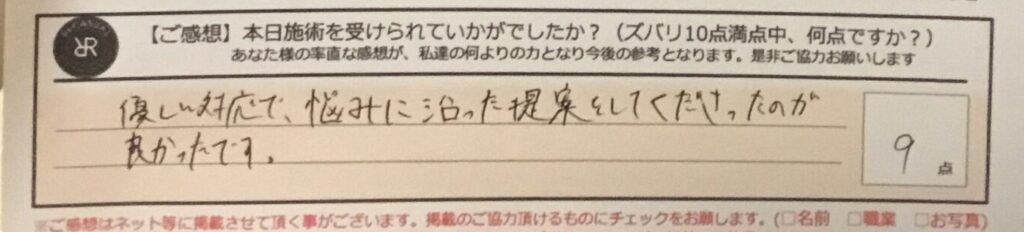 【ご感想】本日施術を受けられていかがでしたか？（ズバリ10点満点中、何点ですか？）
あなた様の率直な感想が、私達の何よりの力となり今後の参考となります。是非ご協力お願いします
優しい対応で、悩みに沿った提案をしてくださったのが
良かったです。
9点
※ご感想はネット等に掲載させて頂く事がございます。掲載のご協力頂けるものにチェックをお願します。(□名前　□職業　□お写真)